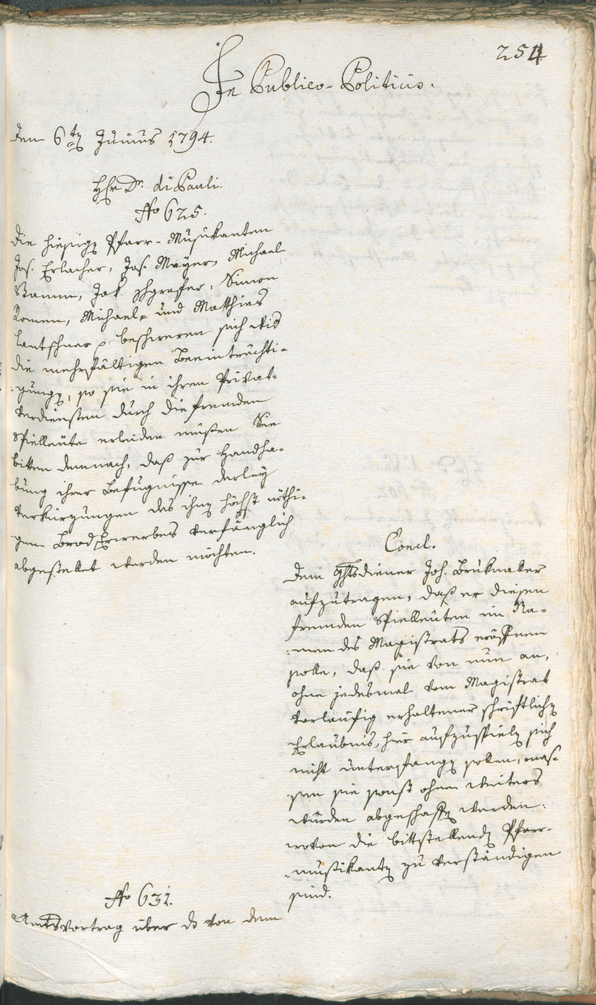 254
In Publico-Politicis.
den 6ten Junius 1794.
Hr. Dr. di Pauli.
No 625.
Die hiesige Pfarr-Musikanten
Jos. Erlacher, Jos. Mayer, Michael
Stamm, Jak. Schgrafer, Simon
Romen, Michael und Matthias
Lantschner beschweren sich wid
die mehrfältigen Beeinträchti-
gungen, so sie in ihren Privat-
verdiensten durch die fremden
Spielleute erleiden müßen. Sie
bitten demnach, daß zur Handha-
bung ihrer Befugnisse derley
Verkürzungen des ihnen höchst nöthi-
gen Brod Erwerbes verfänglich
abgestellt werden möchten.
Concl.
Dem Gstsdiener Joh. Brukmaker
aufzutragen, daß er diesen
fremden Spielleuten im Na-
men des Magistrats eröffnen
solle, daß sie von nun an,
ohne jedesmal vom Magistrat
vorläufig erhaltener schriftlichen
Erlaubnis, hier aufzuspielen sich
nicht unterfangen sollen, mas-
sen sie sonst ohne weiters
würden abgeschaft werden:
wovon die bittstellende Pfarr-
musikanten zu verständigen
sind.
No 631.
Amtsvortrag über dz von dem